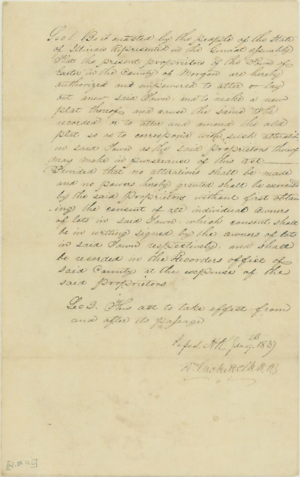 Sec 1. Be it enacted by the People of the State
of Illinois represented in the General Assembly
That the present proprietors of the Town of
in the County of Morgan are hereby
authorized and empowered to alter or lay
out anew said Town and to make a new
plat thereof and cause the same to be
recorded or to alter and amend the old
plat so as to correspond with such alterations
in said Town as the said Proprietors
may make in pursuance of this act
Provided that no alterations shall be made
and no powers hereby granted shall be exercised
by the said Proprietors without first obtain
ing the consent of all individual owners
of lots in said Town which consent shall
be in writing signed by the owners of lots
in said Town respectively and shall
be recorded in the Recorders office of
said County at the expense of the
said Proprietors
Sec 2. This act to take effect from
and after its passage